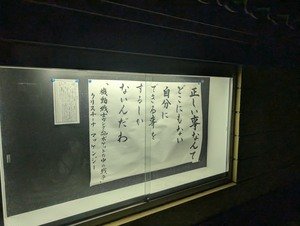 正しい事なんて
どこにもない
自分に
できる事を
するしか
ないんだわ
機動戦士ガンダム0080ポケットの中の戦争
クリスチーナ・マッケンジー